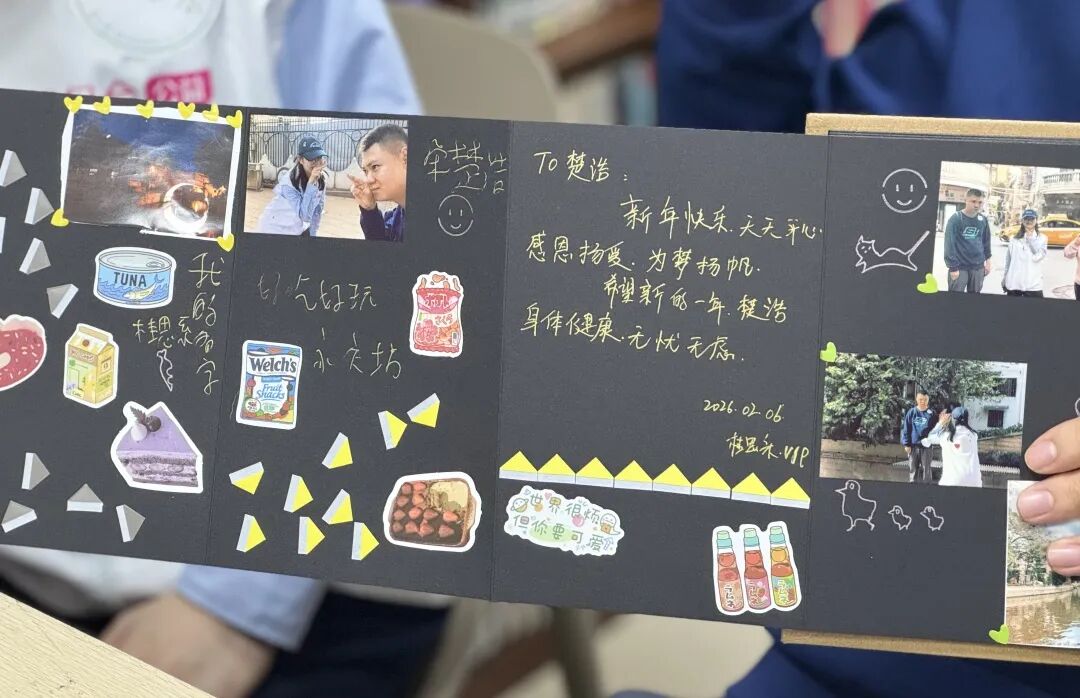 公益
TUNA
我的名字
Welch's
Fruit
Snacks
好吃好玩
永庆坊
To 楚浩:
新年快乐、天天开心
感恩扬爱、为梦扬帆、
希望新的一年、楚浩
身体健康、无忧无虑、
2026.02.06
世界很烦
但你要可爱
ラムネ